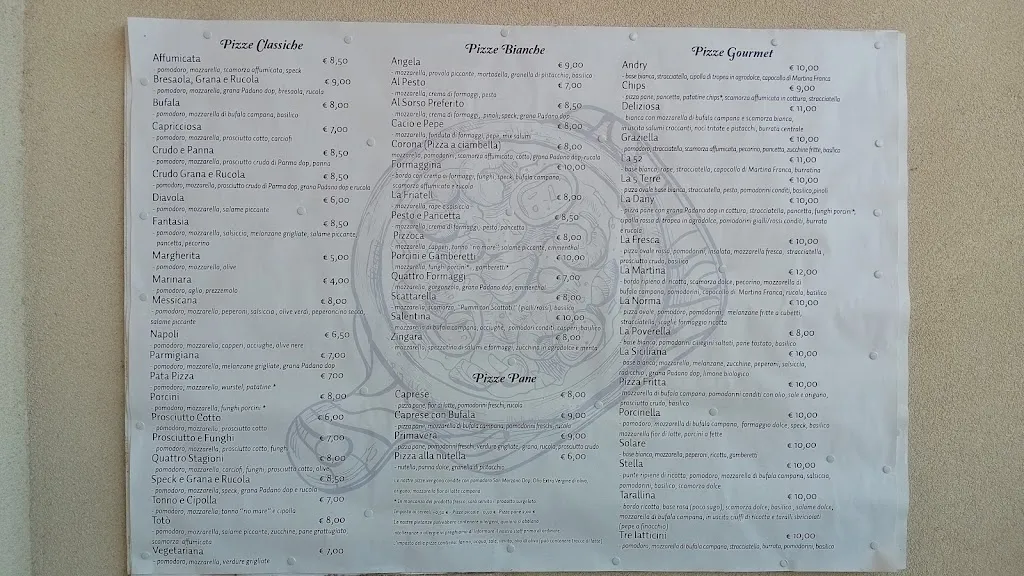 Pizze Classiche
Affumicata € 8,50
- pomodoro, mozzarella, scamorza affumicata, speck
Bresaola, Grana e Rucola € 9,00
- pomodoro, mozzarella, grana Padano dop, bresaola, rucola
Bufala € 8,00
- pomodoro, mozzarella di bufala campana, basilico
Capricciosa € 7,00
- pomodoro, mozzarella, prosciutto cotto, carciofi
Crudo e Panna € 8,50
- pomodoro, mozzarella, prosciutto crudo di Parma dop, panna
Crudo Grana e Rucola € 8,50
- pomodoro, mozzarella, prosciutto crudo di Parma dop, grana Padano dop e rucola
Diavola € 6,00
- pomodoro, mozzarella, salame piccante
Fantasia € 8,50
- pomodoro, mozzarella, salsiccia, melenzane grigliate, salame piccante,
pancetta, pecorino
Margherita € 5,00
- pomodoro, mozzarella, olive
Marinara € 4,00
- pomodoro, aglio, prezzemolo
Messicana € 8,00
- pomodoro, mozzarella, peperoni, salsiccia, olive verdi, peperoncino secco,
salame piccante
Napoli € 6,50
- pomodoro, mozzarella, capperi, acciughe, olive nere
Parmigiana € 7,00
- pomodoro, mozzarella, melenzane grigliate, grana Padano dop
Pata Pizza € 7,00
- pomodoro, mozzarella, wurstel, patatine *
Porcini € 8,00
- pomodoro, mozzarella, funghi porcini *
Prosciutto Cotto € 6,00
- pomodoro, mozzarella, prosciutto cotto
Prosciutto e Funghi € 7,00
- pomodoro, mozzarella, prosciutto cotto, funghi
Quattro Stagioni € 8,00
- pomodoro, mozzarella, carciofi, funghi, prosciutto cotto, olive
Speck e Grana e Rucola € 8,50
- pomodoro, mozzarella, speck, grana Padano dop e rucola
Tonno e Cipolla € 7,00
- pomodoro, mozzarella, tonno "no mare" e cipolla
Totò € 8,00
- pomodoro, mozzarella, salame piccante, zucchine, pane grattugiato,
scamorza affumicata
Vegetariana € 7,00
- pomodoro, mozzarella, verdure grigliate
Pizze Bianche
Angela € 9,00
- mozzarella, provola piccante, mortadella, granella di pistacchio, basilico
Al Pesto € 7,00
- mozzarella, crema di formaggi, pesto
Al Sorso Preferito € 8,50
- mozzarella, crema di formaggi, pinoli, speck, grana Padano dop
Cacio e Pepe € 8,00
- mozzarella, fonduta di formaggi, pepe, mix salumi
Corona (Pizza a ciambella) € 8,00
mozzarella, pomodorini, scamorza affumicata, cotto, grana Padano dop, rucola
Formaggina € 10,00
- bordo con crema di formaggi, funghi, speck, bufala campana,
scamorza affumicata e rucola
La Friatell € 8,00
- mozzarella, rape e salsiccia
Pesto e Pancetta € 8,50
- mozzarella, crema di formaggi, pesto, pancetta
Pizzoca € 8,00
- mozzarella, capperi, tonno "no mare", salame piccante, emmenthal
Porcini e Gamberetti € 10,00
- mozzarella, funghi porcini *, gamberetti *
Quattro Formaggi € 7,00
- mozzarella, gorgonzola, grana Padano dop, emmenthal
Scattarella € 8,00
- mozzarella, scamorza, "Pummarin Scattati" (gialli/rossi), basilico
Salentina € 10,00
- mozzarella di bufala campana, acciughe, pomodori conditi, capperi, basilico
Zingara € 8,00
- mozzarella, spezzatino di salumi e formaggi, zucchina in agrodolce e menta
Pizze Pane
Caprese € 8,00
- pizza pane, fior di latte, pomodorini freschi, rucola
Caprese con Bufala € 9,00
- pizza pane, mozzarella di bufala campana, pomodorini freschi, rucola
Primavera € 9,00
- pizza pane, pomodorini freschi, verdure grigliate, grana, rucola, prosciutto crudo
Pizza alla nutella € 6,00
- nutella, panna dolce, granella di pistacchio
Le nostre pizze vengono condite con pomodoro San Marzano Dop, Olio Extra Vergine di oliva,
origano, mozzarella fior di latte campana
* In mancanza del prodotto fresco, sarà servito il prodotto surgelato
Le nostre pietanze potrebbero contenere allergeni
Pizze Gourmet
Andry € 10,00
- base bianca, stracciatella, cipolla di tropea in agrodolce, capocollo di Martina Franca
Chips € 9,00
- pizza pane, pancetta, patatine chips*, scamorza affumicata in cottura, stracciatella
Deliziosa € 11,00
- bianca con mozzarella di bufala campana e scamorza bianca,
in uscita salumi croccanti, noci tritate e pistacchi, burrata centrale
Graziella € 10,00
- pomodoro, stracciatella, scamorza affumicata, pecorino, pancetta, zucchine fritte, basilico
La 52 € 11,00
- base bianca, rape, stracciatella, capocollo di Martina Franca, burratina
La 5 Terre € 10,00
- pizza ovale base bianca, stracciatella, pesto, pomodorini conditi, basilico, pinoli
La Dany € 10,00
- pizza pane con grana Padano dop in cottura, stracciatella, pancetta, funghi porcini*,
cipolla rossa di tropea in agrodolce, pomodorini gialli/rossi conditi, burrata
e rucola
La Fresca € 10,00
- pizza ovale rossa, pomodorini, insalata, mozzarella fresca, stracciatella,
prosciutto crudo, basilico
La Martina € 12,00
- bordo ripieno di ricotta, scamorza dolce, pecorino, mozzarella di
bufala campana, pomodorini, capocollo di Martina Franca, rucola, basilico
La Norma € 10,00
- pizza ovale, pomodoro, pomodorini, melanzane fritte a cubetti,
stracciatella, scaglie formaggio ricotta
La Poverella € 8,00
- base bianca, pomodorini ciliegini saltati, pane tostato, basilico
La Siciliana € 10,00
- base bianca, mozzarella, melenzane, zucchine, peperoni, salsiccia,
radicchio, grana Padano dop, limone biologico
Pizza Fritta € 10,00
- mozzarella di bufala campana, pomodorini conditi con olio, sale e origano,
prosciutto crudo, basilico
Porcinella € 10,00
- pomodoro, mozzarella di bufala campana, formaggio dolce, speck, basilico
mozzarella fior di latte, porcini a fette
Solare € 10,00
- base bianca, mozzarella, peperoni, ricotta, gamberetti
Stella € 10,00
- punte ripiene di ricotta, pomodoro, mozzarella di bufala campana, salsiccia,
pomodorini, basilico, scamorza dolce
Tarallina € 10,00
- bordo ricotta, base rosa (poco sugo), scamorza dolce, basilico, salame dolce,
mozzarella di bufala campana, in uscita ciuffi di ricotta e taralli sbriciolati
(pepe o finocchio)
Tre latticini € 10,00
- pomodoro, mozzarella di bufala campana, stracciatella, burrata, pomodorini, basilico